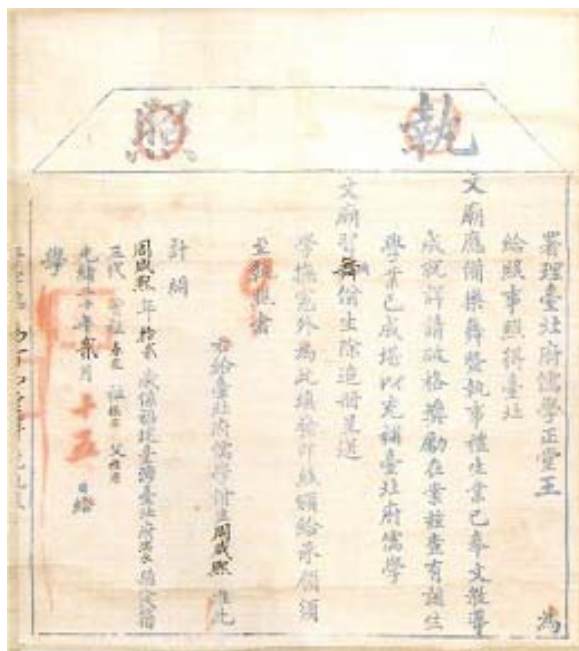 執照
署理臺北府儒學正堂王 為
給照事照得臺北
文廟應備樂舞暨執事禮生業已奉文教導
成就詳請破格獎勵在案茲查有該生
學業已成堪以充補臺北府儒學
文廟習舞佾生除造冊呈送
學撫憲外為此填發印照頒給承領須
至執照者
右給臺北府儒學佾生周咸熙 准此
計開
周咸熙 年 拾貳 歲係福建臺灣臺北府淡水縣
三代 曾祖 祖 父
光緒二十年貳月十五日給
學